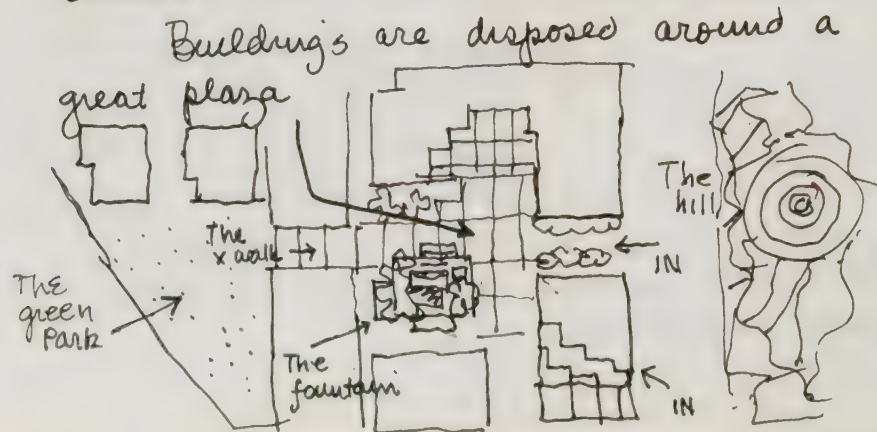 Buildings are disposed around a
great plaza
The
hill
The
x walk
IN
The
green
Park
The
fountain
IN